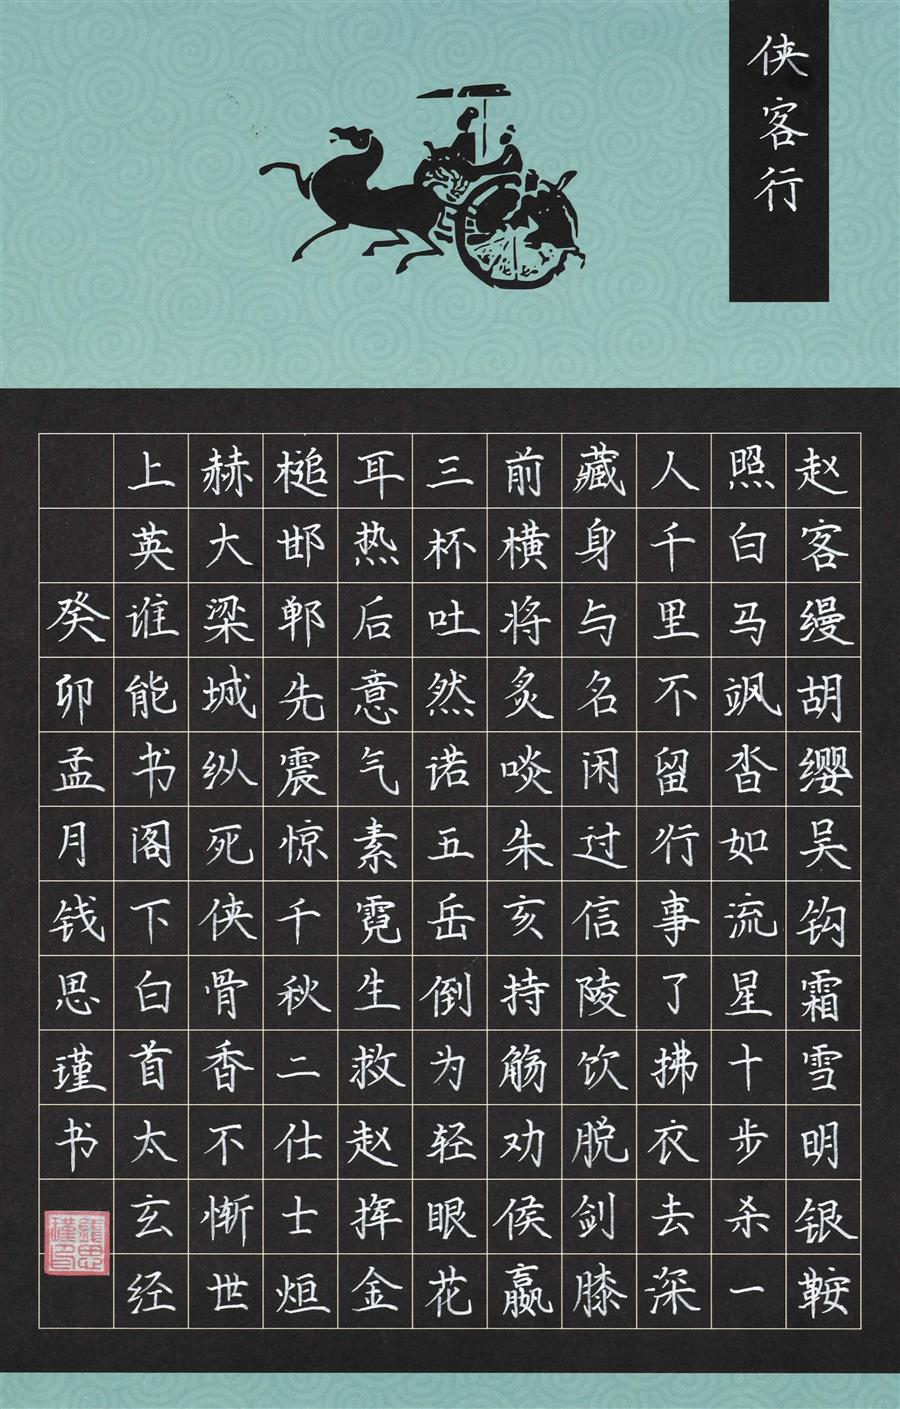 侠客行
赵客缦胡缨吴钩霜雪明银鞍
照白马飒沓如流星十步杀一
人千里不留行事了拂衣去深
藏身与名闲过信陵饮脱剑膝
前横将炙啖朱亥持觞劝侯赢
三杯吐然诺五岳倒为轻眼花
耳热后意气素霓生救赵挥金
槌邯郸先震惊千秋二仕士烜
赫大梁城纵死侠骨香不惭世
上英谁能书阁下白首太玄经
癸卯孟月钱思瑾书